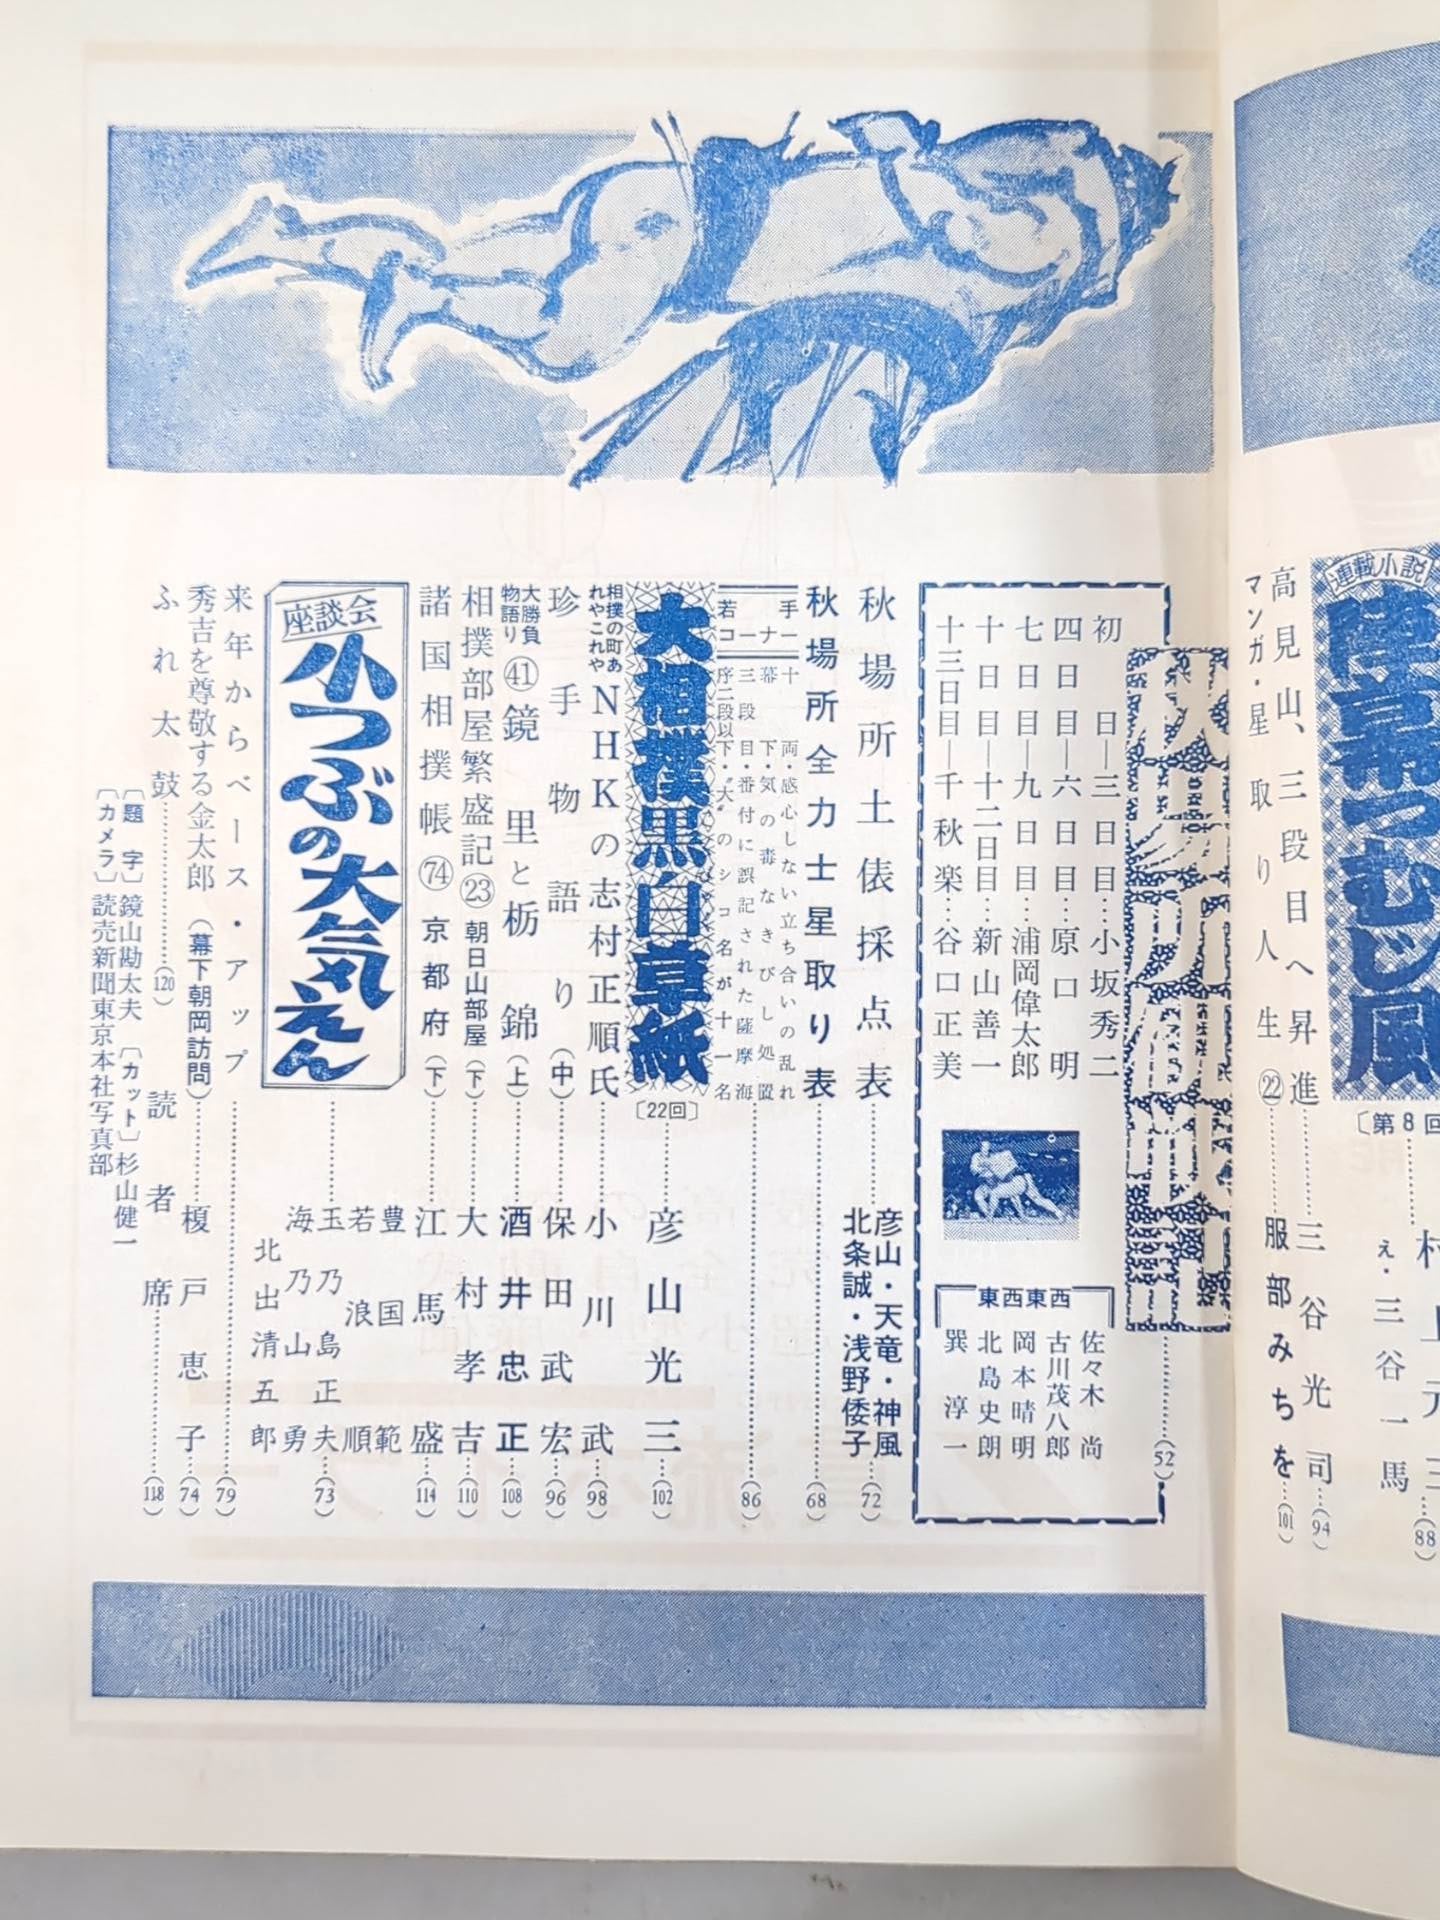 連載小説
陣幕つむじ風
〔第8回
村上元三…(88)
え・三谷一馬
高見山、三段目へ昇進……三谷光司…(94)
マンガ・星取り人生㉒……服部みちを…(101)
(52)
初日―三日目…小坂秀二
四日目―六日目…原口明
七日目―九日目…浦岡偉太郎
十日目―十二日目…新山善一
十三日目―千秋楽…谷口正美
東西東西
佐々木尚
古川茂八郎
岡本晴明
北島史朗
巽淳一
秋場所土俵採点表……彦山・天竜・神風
北条誠・浅野倭子…(72)
秋場所全力士星取り表……(68)
若手コーナー
十両・感心しない立ち合いの乱れ
幕下・気の毒なきびしい処置
三段目・番付に誤記された薩摩海
序二段以下・“大”のシコ名が十一名
(86)
大相撲黒白草紙
〔22回〕……彦山光三…(102)
相撲の町あれやこれや
NHKの志村正順氏……小川武…(98)
珍手物語り(中)……保田武宏…(96)
大勝負物語り㊶鏡里と栃錦(上)……酒井忠正…(108)
相撲部屋繁盛記㉓朝日山部屋(下)……大村孝吉…(110)
諸国相撲帳(74)京都府(下)……江馬盛…(114)
座談会
小つぶの大気えん
豊国範
若浪順
玉乃島正夫
海乃山勇
北出清五郎
(73)
来年からベース・アップ……(79)
秀吉を尊敬する金太郎(幕下朝岡訪問)……榎戸恵子…(74)
ふれ太鼓……(120)
読者席……(118)
〔題字〕鏡山勘太夫 〔カット〕杉山健一
〔カメラ〕読売新聞東京本社写真部